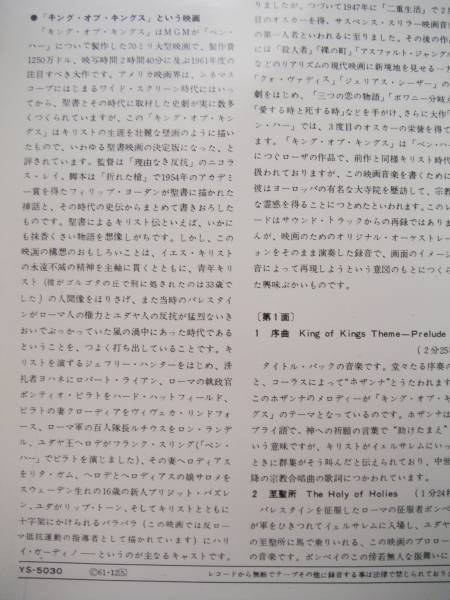 ●「キング・オブ・キングス」という映画
「キング・オブ・キングス」はMGMが「ベン・
ハー」について製作した70ミリ大型映画で、製作費
1250万ドル、映写時間2時間40分に及ぶ1961年度の
注目すべき大作です。アメリカ映画界は、シネマス
コープにはじまるワイド・スクリーン時代にはいっ
てから、聖書とその時代に取材した史劇が実に数多
くつくられていますが、この「キング・オブ・キン
グス」はキリストの生涯を壮麗な壁画のように描い
たもので、いわゆる聖書映画の決定版になった、と
評されています。監督は「理由なき反抗」のニコラ
ス・レイ、脚本は「折れた槍」で1954年のアカデミ
ー賞を得たフィリップ・ヨーダンが聖書に描かれた
挿話と、その時代の史伝からまとめて書きおろした
ものです。聖書によるキリスト伝といえば、いかに
も抹香くさい物語を想像しがちです。しかし、この
映画の構想のおもしろいことは、イエス・キリスト
の永遠不滅の精神を主軸に貫くとともに、青年キリ
スト（彼がゴルゴタの丘で刑に処されたのは33歳で
した）の人間像をほりさげ、また当時のパレスタイ
ンがローマ人の権力とユダヤ人の反抗が猛烈ないき
おいでぶっかっていた嵐の渦中にあった時代である
ということを、つよく打ち出していることです。キ
リストを演ずるジェフリー・ハンターをはじめ、洗
礼者ヨハネにロバート・ライアン、ローマの執政官
ポンティオ・ピラトをハード・ハットフィールド、
ピラトの妻クローディアをヴィヴェカ・リンドフォ
ース、ローマ軍の百人隊長ルチウスをロン・ランデ
ル、ユダヤ王ヘロデがフランク・スリング(「ベン・
ハー」でピラトを演じました)、その妻ヘロディアス
をリタ・ガム、ヘロデとヘロディアスの娘サロメを
スウェーデン生れの16歳の新人ブリジット・バズレ
ン、ユダがリップ・トーン、そしてキリストとともに
十字架にかけられるバラバラ（この映画では反ロー
マ抵抗運動の指導者として描かれています）にハリ
イ・ガーディノ――というのが主なるキャストです。
りましたが、つづいて1947年に「二重生活」で2
目のオスカーを得、サスペンス・スリラー映画音
の第一人者といわれるに至りました。その後の作
には「殺人者」「裸の町」「アスファルト・ジャング
などのリアリズムの現代映画に新境地を見せる一
「クォ・ヴァディス」「ジェリアス・シーザー」の
劇をはじめ、「三つの恋の物語」「ボワニー分岐点
「愛する時と死する時」などを手がけ、さらに大作
ン・ハー」では、3度目のオスカーの栄誉を得て
ます。「キング・オブ・キングス」は「ベン・ハ
につぐローザの作品で、前作と同様キリスト時代
扱われておりますが、この映画音楽を書くために
彼はヨーロッパの有名な大寺院を歴訪して、宗教
な霊感を得ることにつとめたといわれます。このレ
ードはサウンド・トラックからの再録ではありま
んが、映画のためのオリジナル・オーケストレー
ョンをそのまま演奏した録音で、画面のイメージ
音によって再現しようという意図のもとにつくら
た興味ぶかいものです。
〔第1面〕
1 序曲 King of Kings Theme—Prelude
(2分25
タイトル・バックの音楽です。堂々たる序奏の
と、コーラスによって“ホザンナ”とうたわれます
このホザンナのメロディーが「キング・オブ・キ
グス」のテーマとなっているのです。ホザンナは
ブライ語で、神への祈願の言葉で“助けたまえ”
いう意味ですが、キリストがイェルサレムにいっ
ときに群集がそう叫んだと伝えられており、中世
降の宗教合唱曲の歌詞につかわれています。
2 至聖所 The Holy of Holies (1分24
パレスタインを征服したローマの征服者ポンペ
が軍をひきつれてイェルサレムに入場し、ユダヤ
の至聖所に馬で乗りいれる、この映画のプロロー
の音楽です。ポンペイのこの傍若無人な振舞いに
YS-5030 Ⓒ61・12Ⓐ レコードから無断でテープその他に録音する事は法律で禁じられており